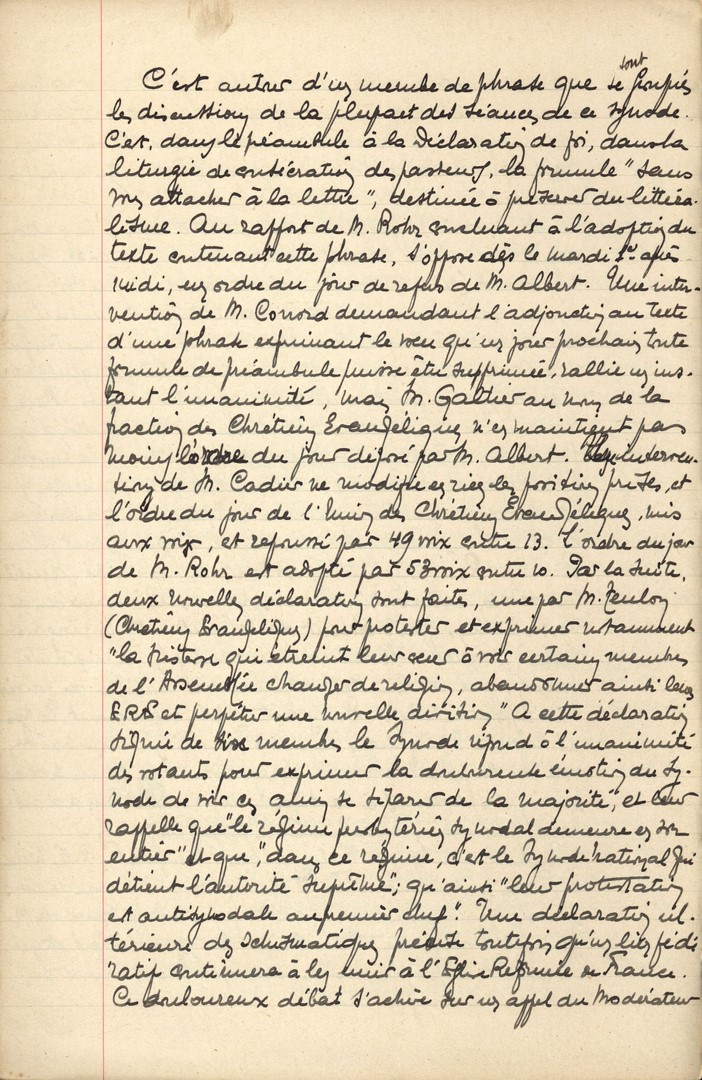 C'est autour d'un membre de phrase que se sont groupées
les discussions de la plupart des séances de ce synode.
C'est, dans le préambule à la Déclaration de foi, dans la
liturgie de consécration des pasteurs, la formule "sans
vous attacher à la lettre", destinée à préserver du littéra-
lisme. Au rapport de M. Rohr concluant à l'adoption du
texte contenant cette phrase, s'oppose dès le mardi 1er après
midi, un ordre du jour de refus de M. Albert. Une inter-
vention de M. Conord demandant l'adjonction au texte
d'une phrase exprimant le vœu qu'un jour prochain toute
formule de préambule puisse être supprimée, rallie un ins-
tant l'unanimité, mais M. Galtier au nom de la
fraction des Chrétiens Evangéliques n'en maintient pas
moins l'ordre du jour déposé par M. Albert. interven-
tion de M. Cadier ne modifie en rien les positions prises, et
l'ordre du jour de l'Union des Chrétiens Evangéliques, mis
aux voix, est repoussé par 49 voix contre 13. L'ordre du jour
de M. Rohr est adopté par 53 voix contre 10. Par la suite,
deux nouvelles déclarations sont faites, une par M. Teulon
(Chrétiens Evangéliques) pour protester et exprimer notamment
"la tristesse qui étreint leur cœur à voir certains membres
de l'Assemblée changer de religion, abandonner ainsi leur
ERE et perpétrer une nouvelle division" A cette déclaration
signée de six membres le Synode répond à l'unanimité
des votants pour exprimer la douloureuse émotion du Sy-
node de voir ces amis se séparer de la majorité", et leur
rappelle que "le régime presbytérien synodal demeure en son
entier" et que, "dans ce régime, c'est le Synode national qui
détient l'autorité suprême"; qu'ainsi "leur protestation
est antisynodale au premier chef". Une déclaration ul-
térieure des schismatiques précise toutefois qu'un lien fédé
ratif continuera à les unir à l'Eglise Réformée de France.
Ce douloureux débat s'achève sur un appel du Modérateur